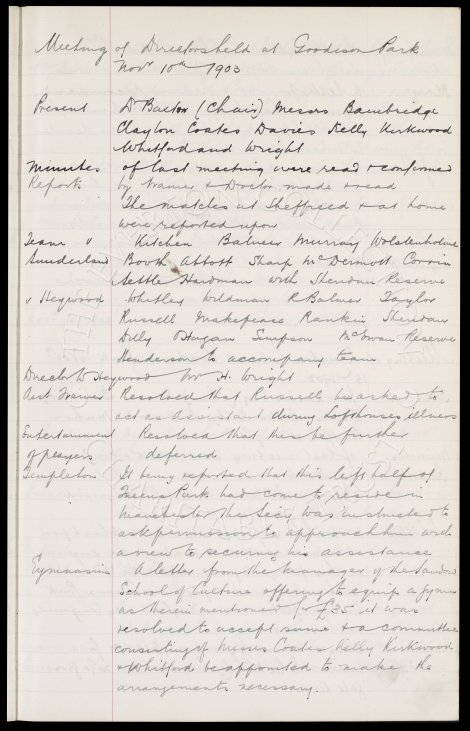 Meeting of Directors held at Goodison Park
Novr 10th 1903
Present Dr Baxter (Chair) Messrs Bainbridge
Clayton Coates Davies Kelly Kirkwood
Whitford and Wright
Minutes of last meeting were read & confirmed
Reports by trainer & Doctor made & read
The matches at Sheffield & at home
were reported upon
Team v Kitchen Balmer Murray Wolstenholme
Sunderland Booth Abbott Sharp McDermott Corrin
Settle Hardman with Sheridan Reserve
v Heywood Whitley Wildman R Balmer Taylor
Russell Makepeace Rankin Sheridan
Dilly O'Hagan Simpson McEwan Reserve
Henderson to accompany team
Director to Heywood Mr H. Wright
Asst Trainer Resolved that Russell be asked to
act as Assistant during Lofthouses illness
Entertainment Resolved that this be further
of players deferred
Templeton It being reported that this left half of
Queens Park had come to reside in
Manchester the Secy was instructed to
ask permission to approach him with
a view to securing his assistance
Gymnasium A letter from the Manager of the Sandow
School of Culture offering to equip a gymn
as therein mentioned for £35 it was
resolved to accept same & a committee
consisting of Messrs Coates Kelly Kirkwood
& Whitford be appointed to make the
arrangements necessary.